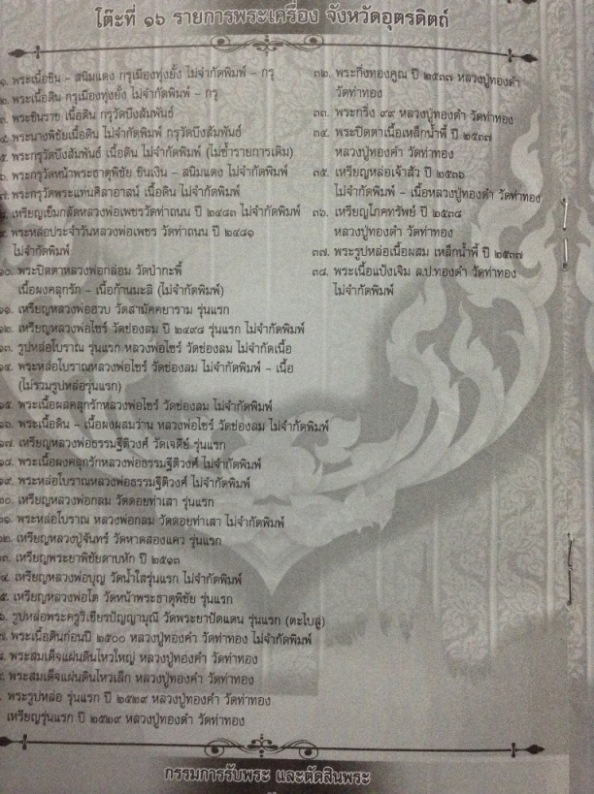 โต๊ะที่ ๑๖ รายการพระเครื่อง จังหวัดอุตรดิตถ์
๑. พระเนื้อชิน - สนิมแดง กรุเมืองทุ่งยั้ง ไม่จำกัดพิมพ์ - กรุ
๒. พระเนื้อดิน กรุเมืองทุ่งยั้ง ไม่จำกัดพิมพ์ - กรุ
๓. พระชินราช เนื้อดิน กรุวัดบึงสัมพันธ์
๔. พระนางพิชัยเนื้อดิน ไม่จำกัดพิมพ์ กรุวัดบึงสัมพันธ์
๕. พระกรุวัดบึงสัมพันธ์ เนื้อดิน ไม่จำกัดพิมพ์ (ไม่ซ้ำรายการเดิม)
๖. พระกรุวัดหน้าพระธาตุพิชัย ชินเงิน - สนิมแดง ไม่จำกัดพิมพ์
๗. พระกรุวัดพระแท่นศิลาอาสน์ เนื้อดิน ไม่จำกัดพิมพ์
เหรียญเข็มกลัดหลวงพ่อเพชรวัดท่าถนน ปี ๒๔๘๓ ไม่จำกัดพิมพ์
๙. พระหล่อประจำวันหลวงพ่อเพชร วัดท่าถนน ปี ๒๔๘๑
ไม่จำกัดพิมพ์
๑๐. พระปิดตาหลวงพ่อกล่อม วัดป่ากะพี้
เนื้อผงคลุกรัก - เนื้อก้านมะลิ (ไม่จำกัดพิมพ์)
๑๑. เหรียญหลวงพ่อฮวบ วัดสามัคคยาราม รุ่นแรก
๑๒. เหรียญหลวงพ่อไซร์ วัดช่องลม ปี ๒๔๙๘ รุ่นแรก ไม่จำกัดพิมพ์
๑๓. รูปหล่อโบราณ รุ่นแรก หลวงพ่อไซร์ วัดช่องลม ไม่จำกัดเนื้อ
๑๔. พระหล่อโบราณหลวงพ่อไซร์ วัดช่องลม ไม่จำกัดพิมพ์ - เนื้อ
(ไม่รวมรูปหล่อรุ่นแรก)
๑๕. พระเนื้อผงคลุกรักหลวงพ่อไซร์ วัดช่องลม ไม่จำกัดพิมพ์
๑๖. พระเนื้อดิน - เนื้อผงผสมว่าน หลวงพ่อไซร์ วัดช่องลม ไม่จำกัดพิมพ์
๑๗. เหรียญหลวงพ่อธรรมฐิติวงศ์ วัดเจดีย์ รุ่นแรก
๑๘. พระเนื้อผงคลุกรักหลวงพ่อธรรมฐิติวงศ์ ไม่จำกัดพิมพ์
๑๙. พระหล่อโบราณหลวงพ่อธรรมฐิติวงศ์ ไม่จำกัดพิมพ์
๒๐. เหรียญหลวงพ่อกลม วัดดอยท่าเสา รุ่นแรก
๒๑. พระหล่อโบราณ หลวงพ่อกลม วัดดอยท่าเสา ไม่จำกัดพิมพ์
๒๒. เหรียญหลวงปู่จันทร์ วัดหาดสองแคว รุ่นแรก
๒๓. เหรียญพระยาพิชัยดาบหัก ปี ๒๕๑๓
๔. เหรียญหลวงพ่อบุญ วัดน้ำใสรุ่นแรก ไม่จำกัดพิมพ์
๕. เหรียญหลวงพ่อโต วัดหน้าพระธาตุพิชัย รุ่นแรก
๖. รูปหล่อพระครูวิเชียรปัญญามุณี วัดพระยาปัดแดน รุ่นแรก (ตะไบลู่)
๗. พระเนื้อดินก่อนปี ๒๕๐๐ หลวงปู่ทองดำ วัดท่าทอง ไม่จำกัดพิมพ์
พระสมเด็จแผ่นดินไหวใหญ่ หลวงปู่ทองดำ วัดท่าทอง
พระสมเด็จแผ่นดินไหวเล็ก หลวงปู่ทองดำ วัดท่าทอง
พระรูปหล่อ รุ่นแรก ปี ๒๕๒๙ หลวงปู่ทองดำ วัดท่าทอง
เหรียญรุ่นแรก ปี ๒๕๒๙ หลวงปู่ทองดำ วัดท่าทอง
๓๒. พระกิ่งทองคูณ ปี ๒๕๓๗ หลวงปู่ทองดำ
วัดท่าทอง
๓๓. พระกริ่ง ๙๙ หลวงปู่ทองดำ วัดท่าทอง
๓๔. พระปิดตาเนื้อเหล็กน้ำพี้ ปี ๒๕๓๗
หลวงปู่ทองดำ วัดท่าทอง
๓๕. เหรียญหล่อเจ้าสัว ปี ๒๕๓๖
ไม่จำกัดพิมพ์ - เนื้อหลวงปู่ทองดำ วัดท่าทอง
๓๖. เหรียญโภคทรัพย์ ปี ๒๕๓๘
หลวงปู่ทองดำ วัดท่าทอง
๓๗. พระรูปหล่อเนื้อผสม เหล็กน้ำพี้ ปี ๒๕๓๗
๓๘. พระเนื้อแป้งเจิม ล.ป.ทองดำ วัดท่าทอง
ไม่จำกัดพิมพ์
กรรมการรับพระ และตัดสินพระ